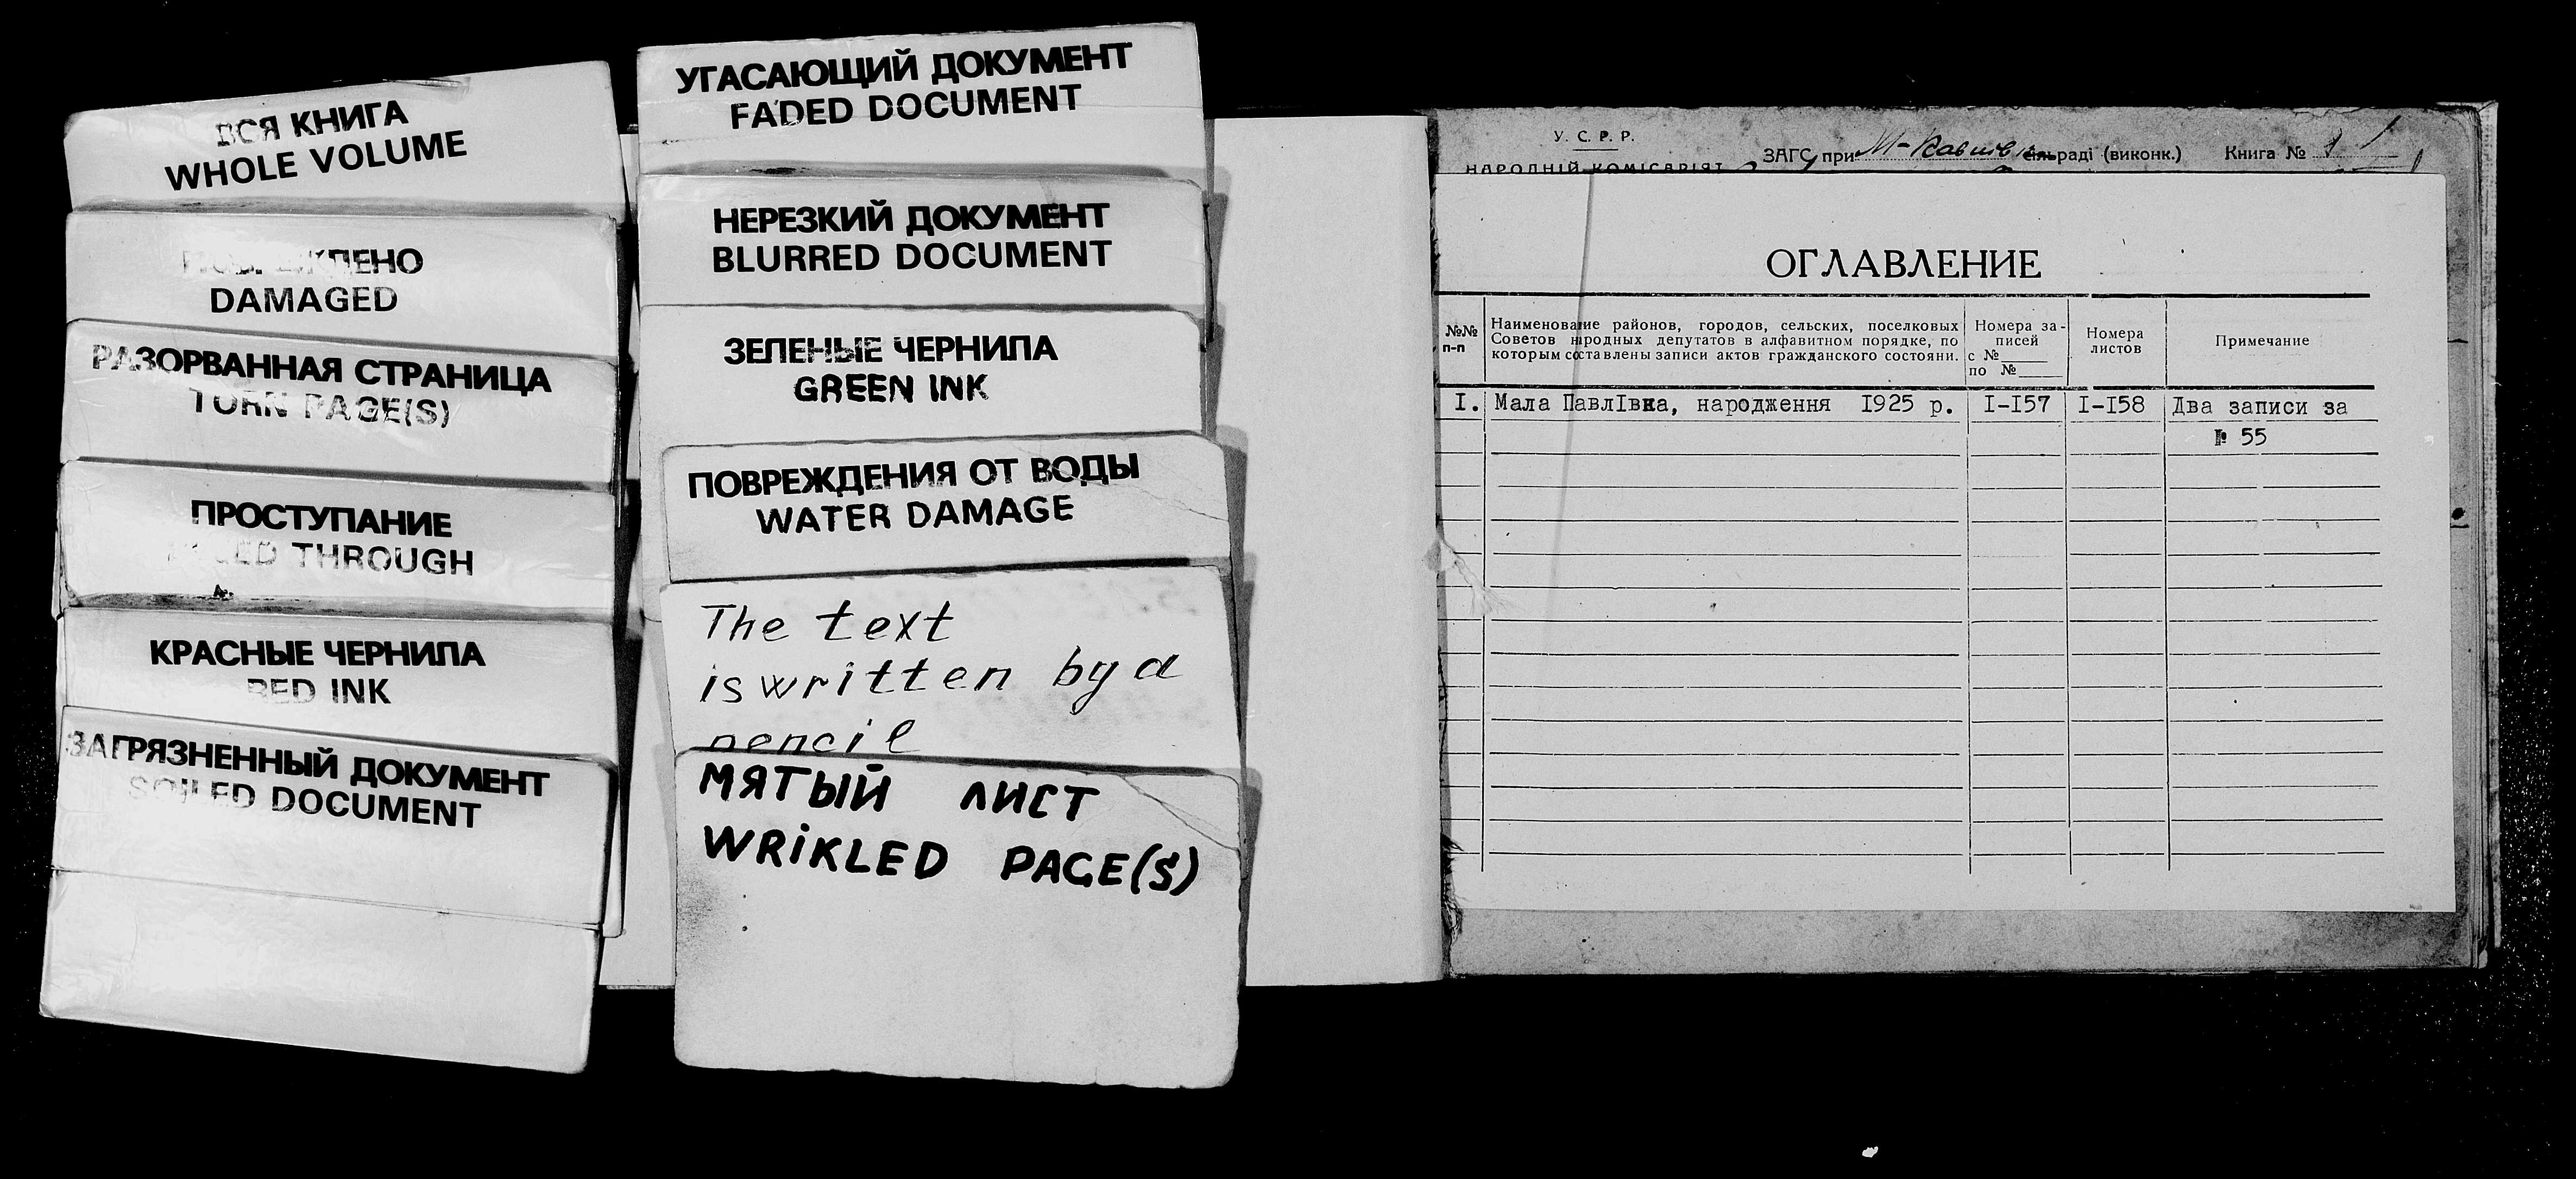 ВСЯ КНИГА
WHOLE VOLUME
ПОВРЕЖДЕНО
DAMAGED
РАЗОРВАННАЯ СТРАНИЦА
TORN PAGE(S)
ПРОСТУПАНИЕ
THROUGH
КРАСНЫЕ ЧЕРНИЛА
RED INK
ЗАГРЯЗНЕННЫЙ ДОКУМЕНТ
SOILED DOCUMENT
УГАСАЮЩИЙ ДОКУМЕНТ
FADED DOCUMENT
НЕРЕЗКИЙ ДОКУМЕНТ
BLURRED DOCUMENT
ЗЕЛЕНЫЕ ЧЕРНИЛА
GREEN INK
ПОВРЕЖДЕНИЯ ОТ ВОДЫ
WATER DAMAGE
The text
is written by a
pencil
МЯТЫЙ ЛИСТ
WRIKLED PAGE(S)
У. С. Р. Р.
НАРОДНІЙ КОМІСАРІЯТ
ЗАГС при сільраді (виконк.) Книга №
ОГЛАВЛЕНИЕ
№№ п-п
Наименование районов, городов, сельских, поселковых
Советов народных депутатов в алфавитном порядке, по
которым составлены записи актов гражданского состояни.
Номера за-
писей
с №
по №
Номера
листов
Примечание
I. Мала ПавлIвка, народження I925 р. I-I57 I-I58 Два записи за
№ 55